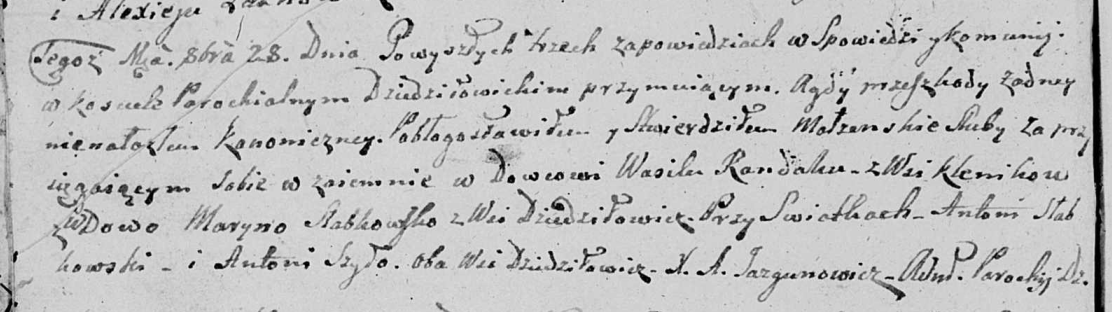 i Alexieja
Tegoż Mca. 8bra 28. Dnia Powyszłych trzech zapowiedziach w Spowiedzi y komunij.
w kosciele Parochialnym Dziedziłowickim przymuiącym. Agdy przeszkody żadney
nienalazłem kanoniczney. Pobłogosławiłem y Stwierdziłem Małzenskie Sluby Zaprz
ięgaiącym Sobie w zaiemnie w Dowcowi Wasilu Randaku - z Wsi klenikow
z Wdowo Maryno Słabkowsko z Wsi Dziedziłowicz. Przy Swiatkach - Antoni Słab
kowski - i Antoni Szyło. Oba Wsi Dziedziłowicz - X. A. Jazgunowicz - Adm. Parochij Dz.